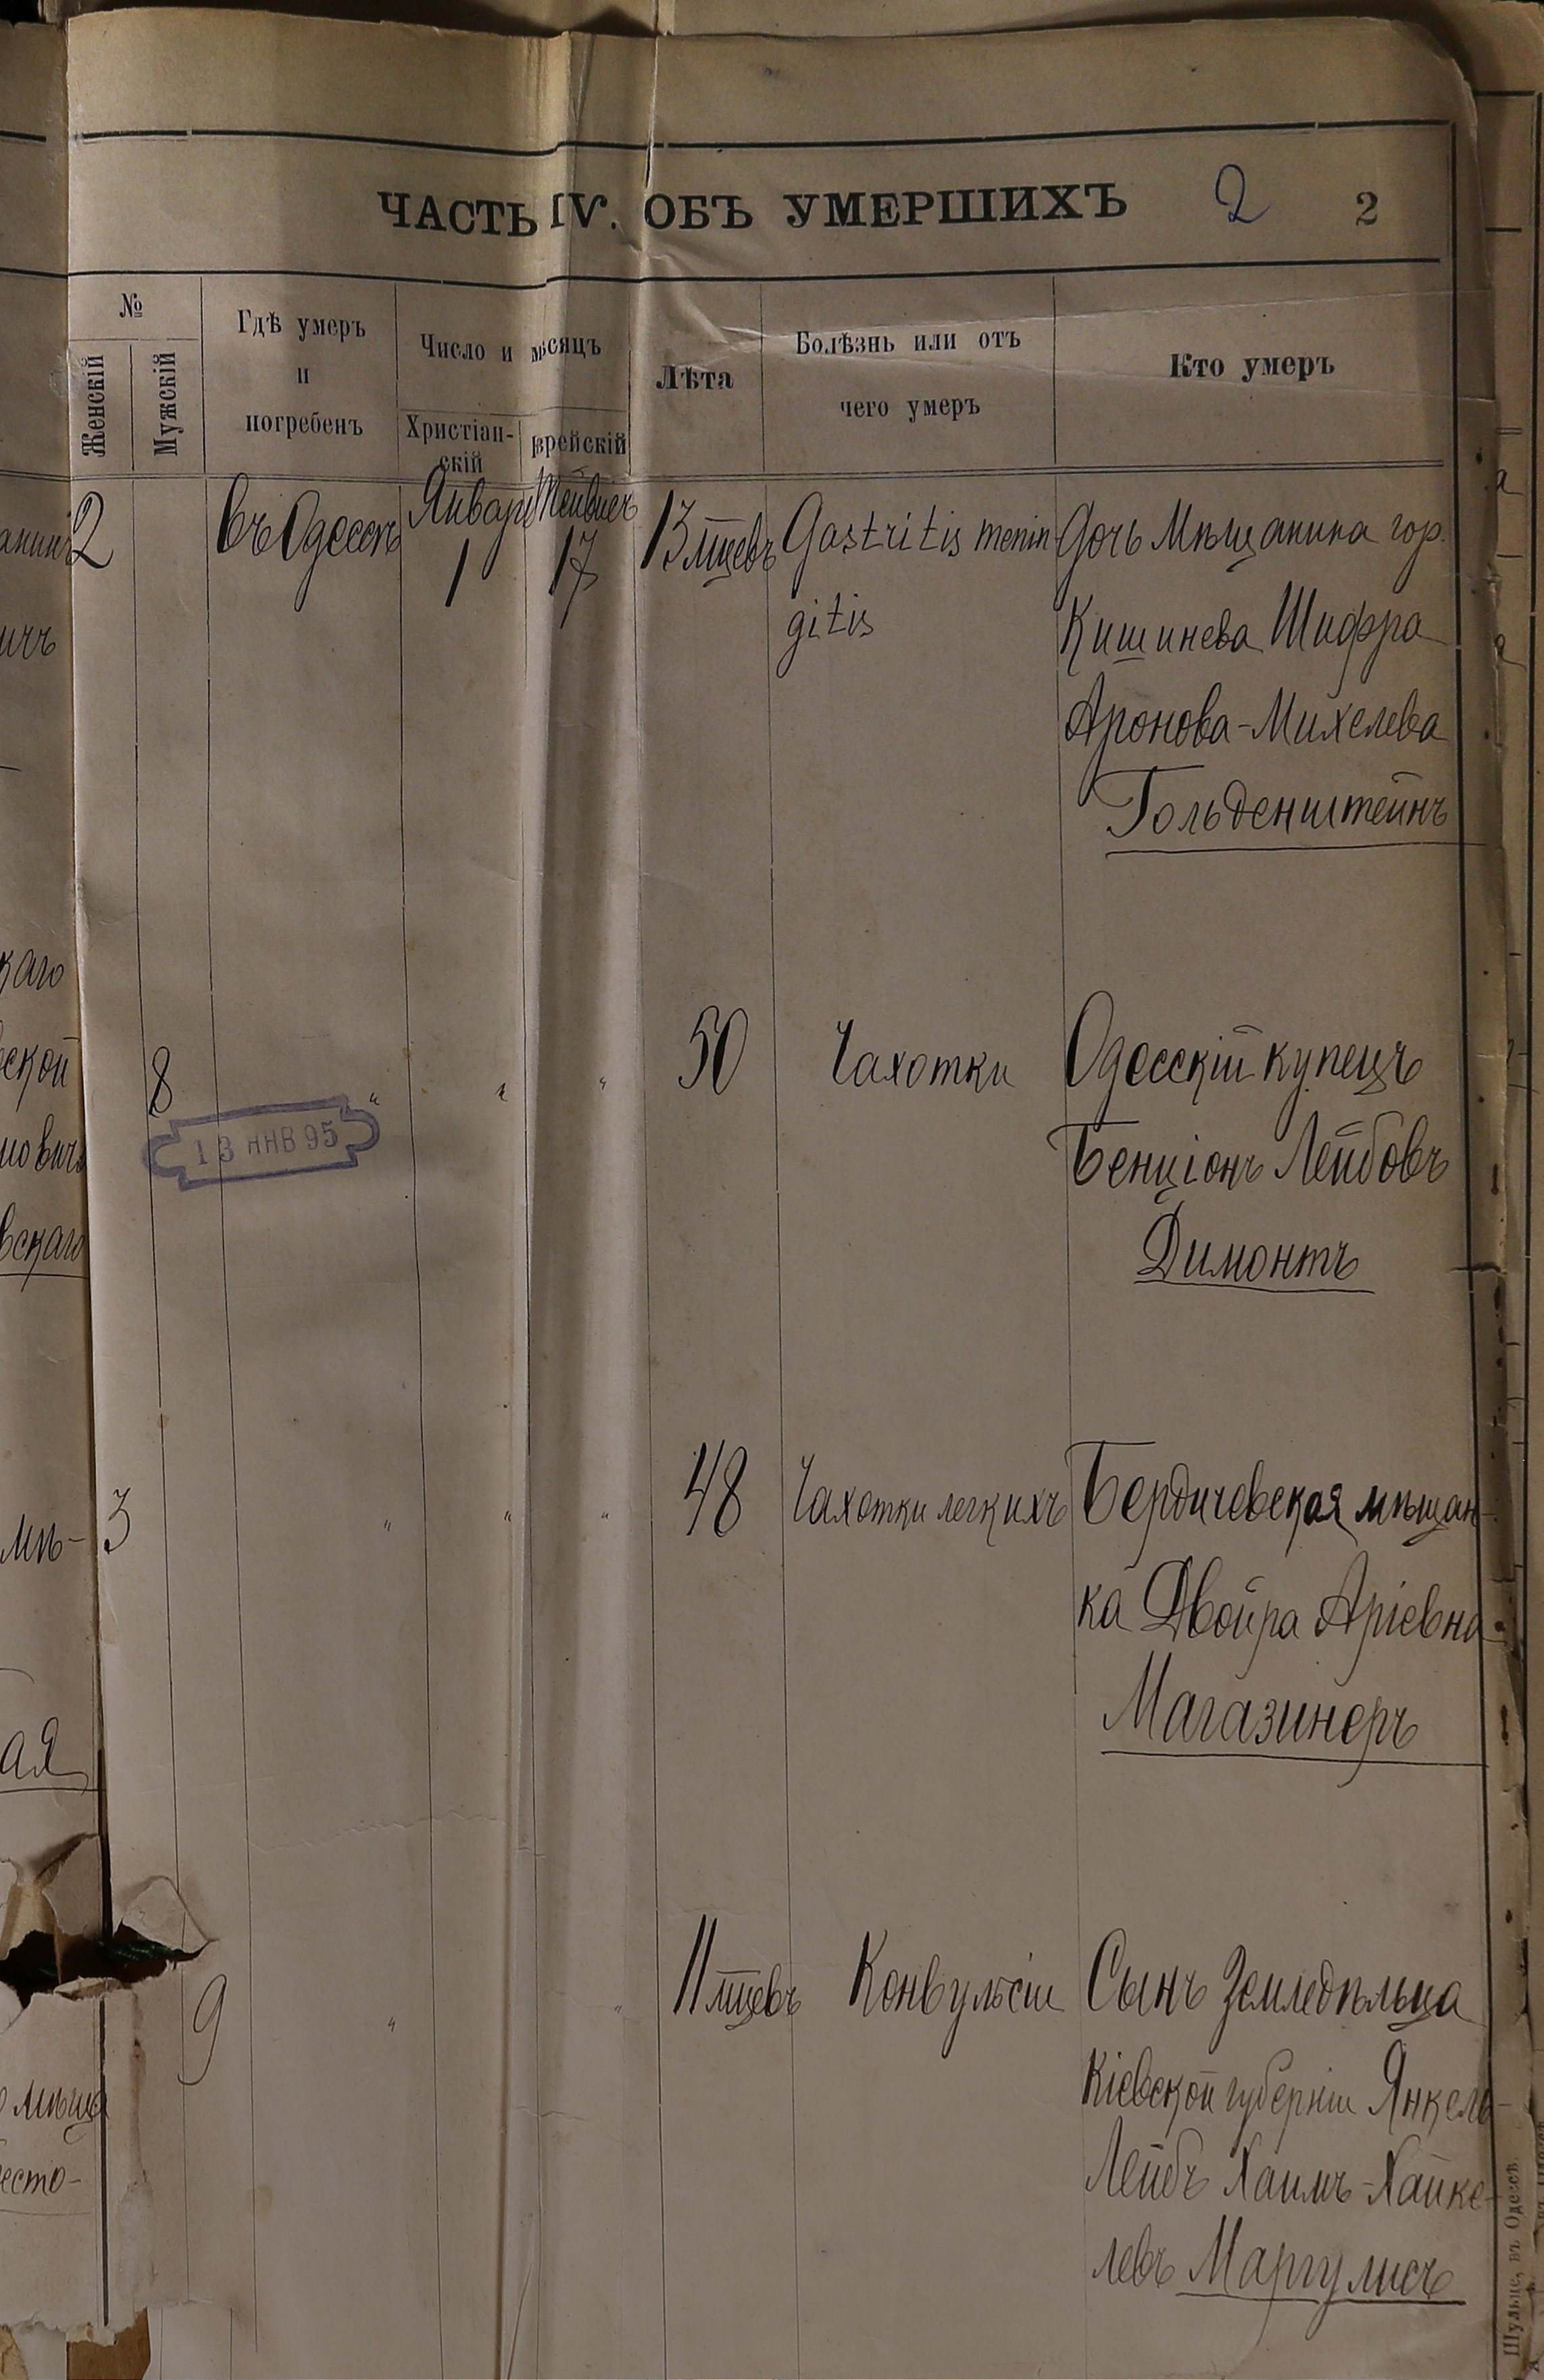 ЧАСТЬ IV. ОБЪ УМЕРШИХЪ 2 2
№
Женскій
Мужскій
Гдѣ умеръ
и
погребенъ
Число и мѣсяцъ
Христіан-
скій
Еврейскій
Лѣта
Болѣзнь или отъ
чего умеръ
Кто умеръ
2 Въ Одессѣ Января 1 17 13 мцевъ Gastritis menin Дочь Мѣщанина гор.
gitis Кишинева Шифра
Аронова-Михелева
Гольденштейнъ
8 " " " 50 Чахотки Одесскій купецъ
13 ЯНВ 95
Бенціонъ Лейбовъ
Димонтъ
3 " " " 48 Чахотки легкихъ Бердичевская мѣщан-
ка Двойра Аріевна
Магазинеръ
9 " " 11 мцевъ Конвульсіи Сынъ Земледѣльца
Кіевской губерніи Янкель-
Лейбъ Хаимъ-Хайке-
левъ Маргулисъ
каго
ской
вскаго
мѣ-
ая
есто-
Шульце, въ Одессѣ.